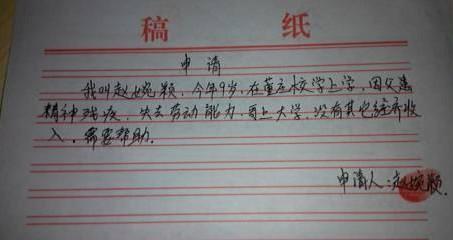 稿 纸
申请
我叫赵婉颖，今年9岁，在董庄校学上学，因父患
精神残疾，失去劳动能力，哥上大学，没有其它经济收
入，需要帮助。
申请人：赵婉颖.